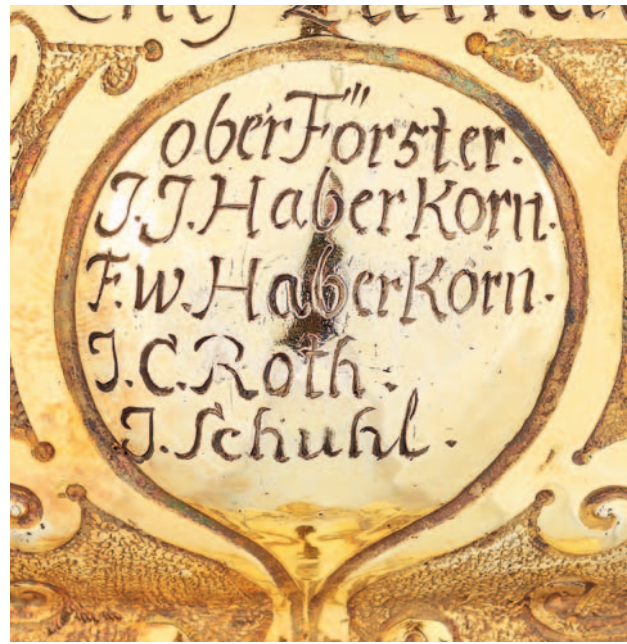 oberFörster.
J.J.HaberKorn.
F.W.HaberKorn.
J.C.Roth.
J.Schuhl.